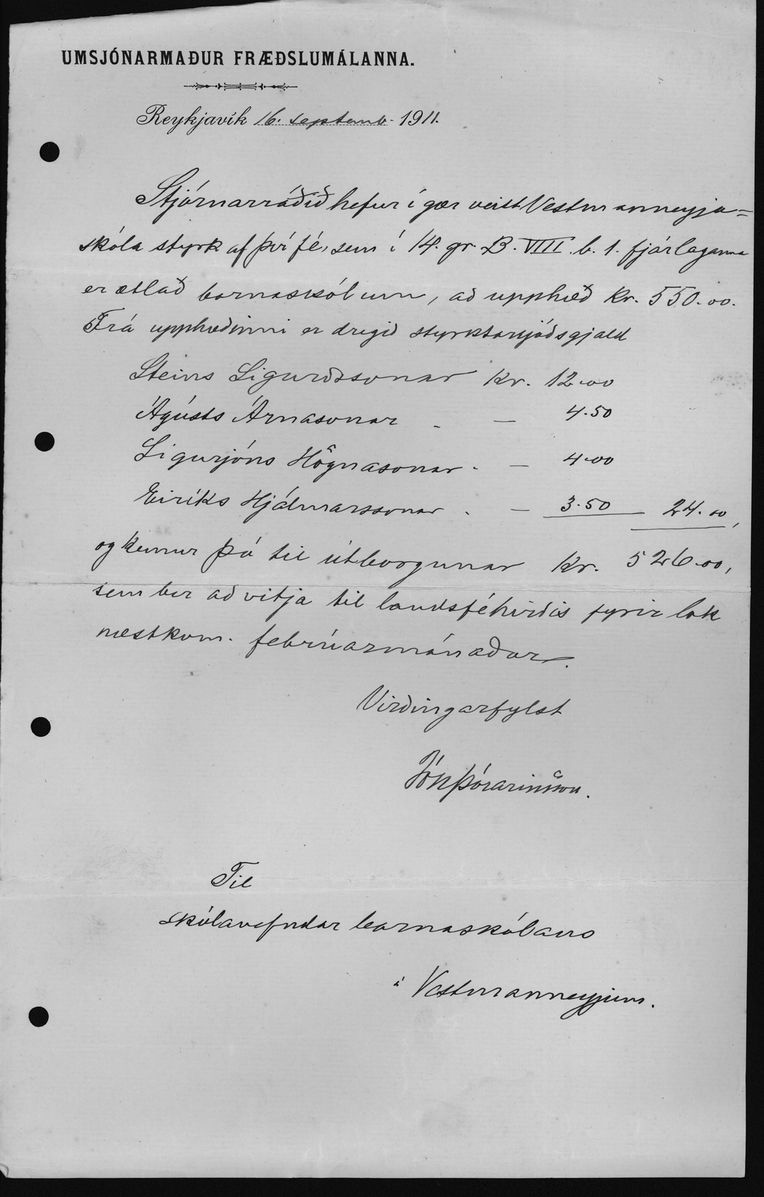 UMSJÓNARMAÐUR FRÆÐSLUMÁLANNA.
Reykjavík 16. septemb. 1911.
Stjórnarráðið hefur í gær veist Vestmanneyja=
skóla styrk af því fé, sem í 14. gr. B. VIII. b. 1. fjárlaganna
er ætlað barnaskólum, að upphæð kr. 550.00.
Frá upphæðinni er dregið styrktarsjóðsgjald
Steins Sigurðssonar kr. 12.00
Ágústs Árnasonar - — 4.50
Sigurjóns Högnasonar - — 4.00
Eiríks Hjálmarssonar - — 3.50 — 24.00,
og kemur þá til útborgunar kr. 526.00,
sem ber að vitja til landsféhirðis fyrir lok
næstkom. febrúarmánaðar.
Virðingarfylst
Jón Þórarinsson.
Til
skólanefndar barnaskólans
í Vestmanneyjum.